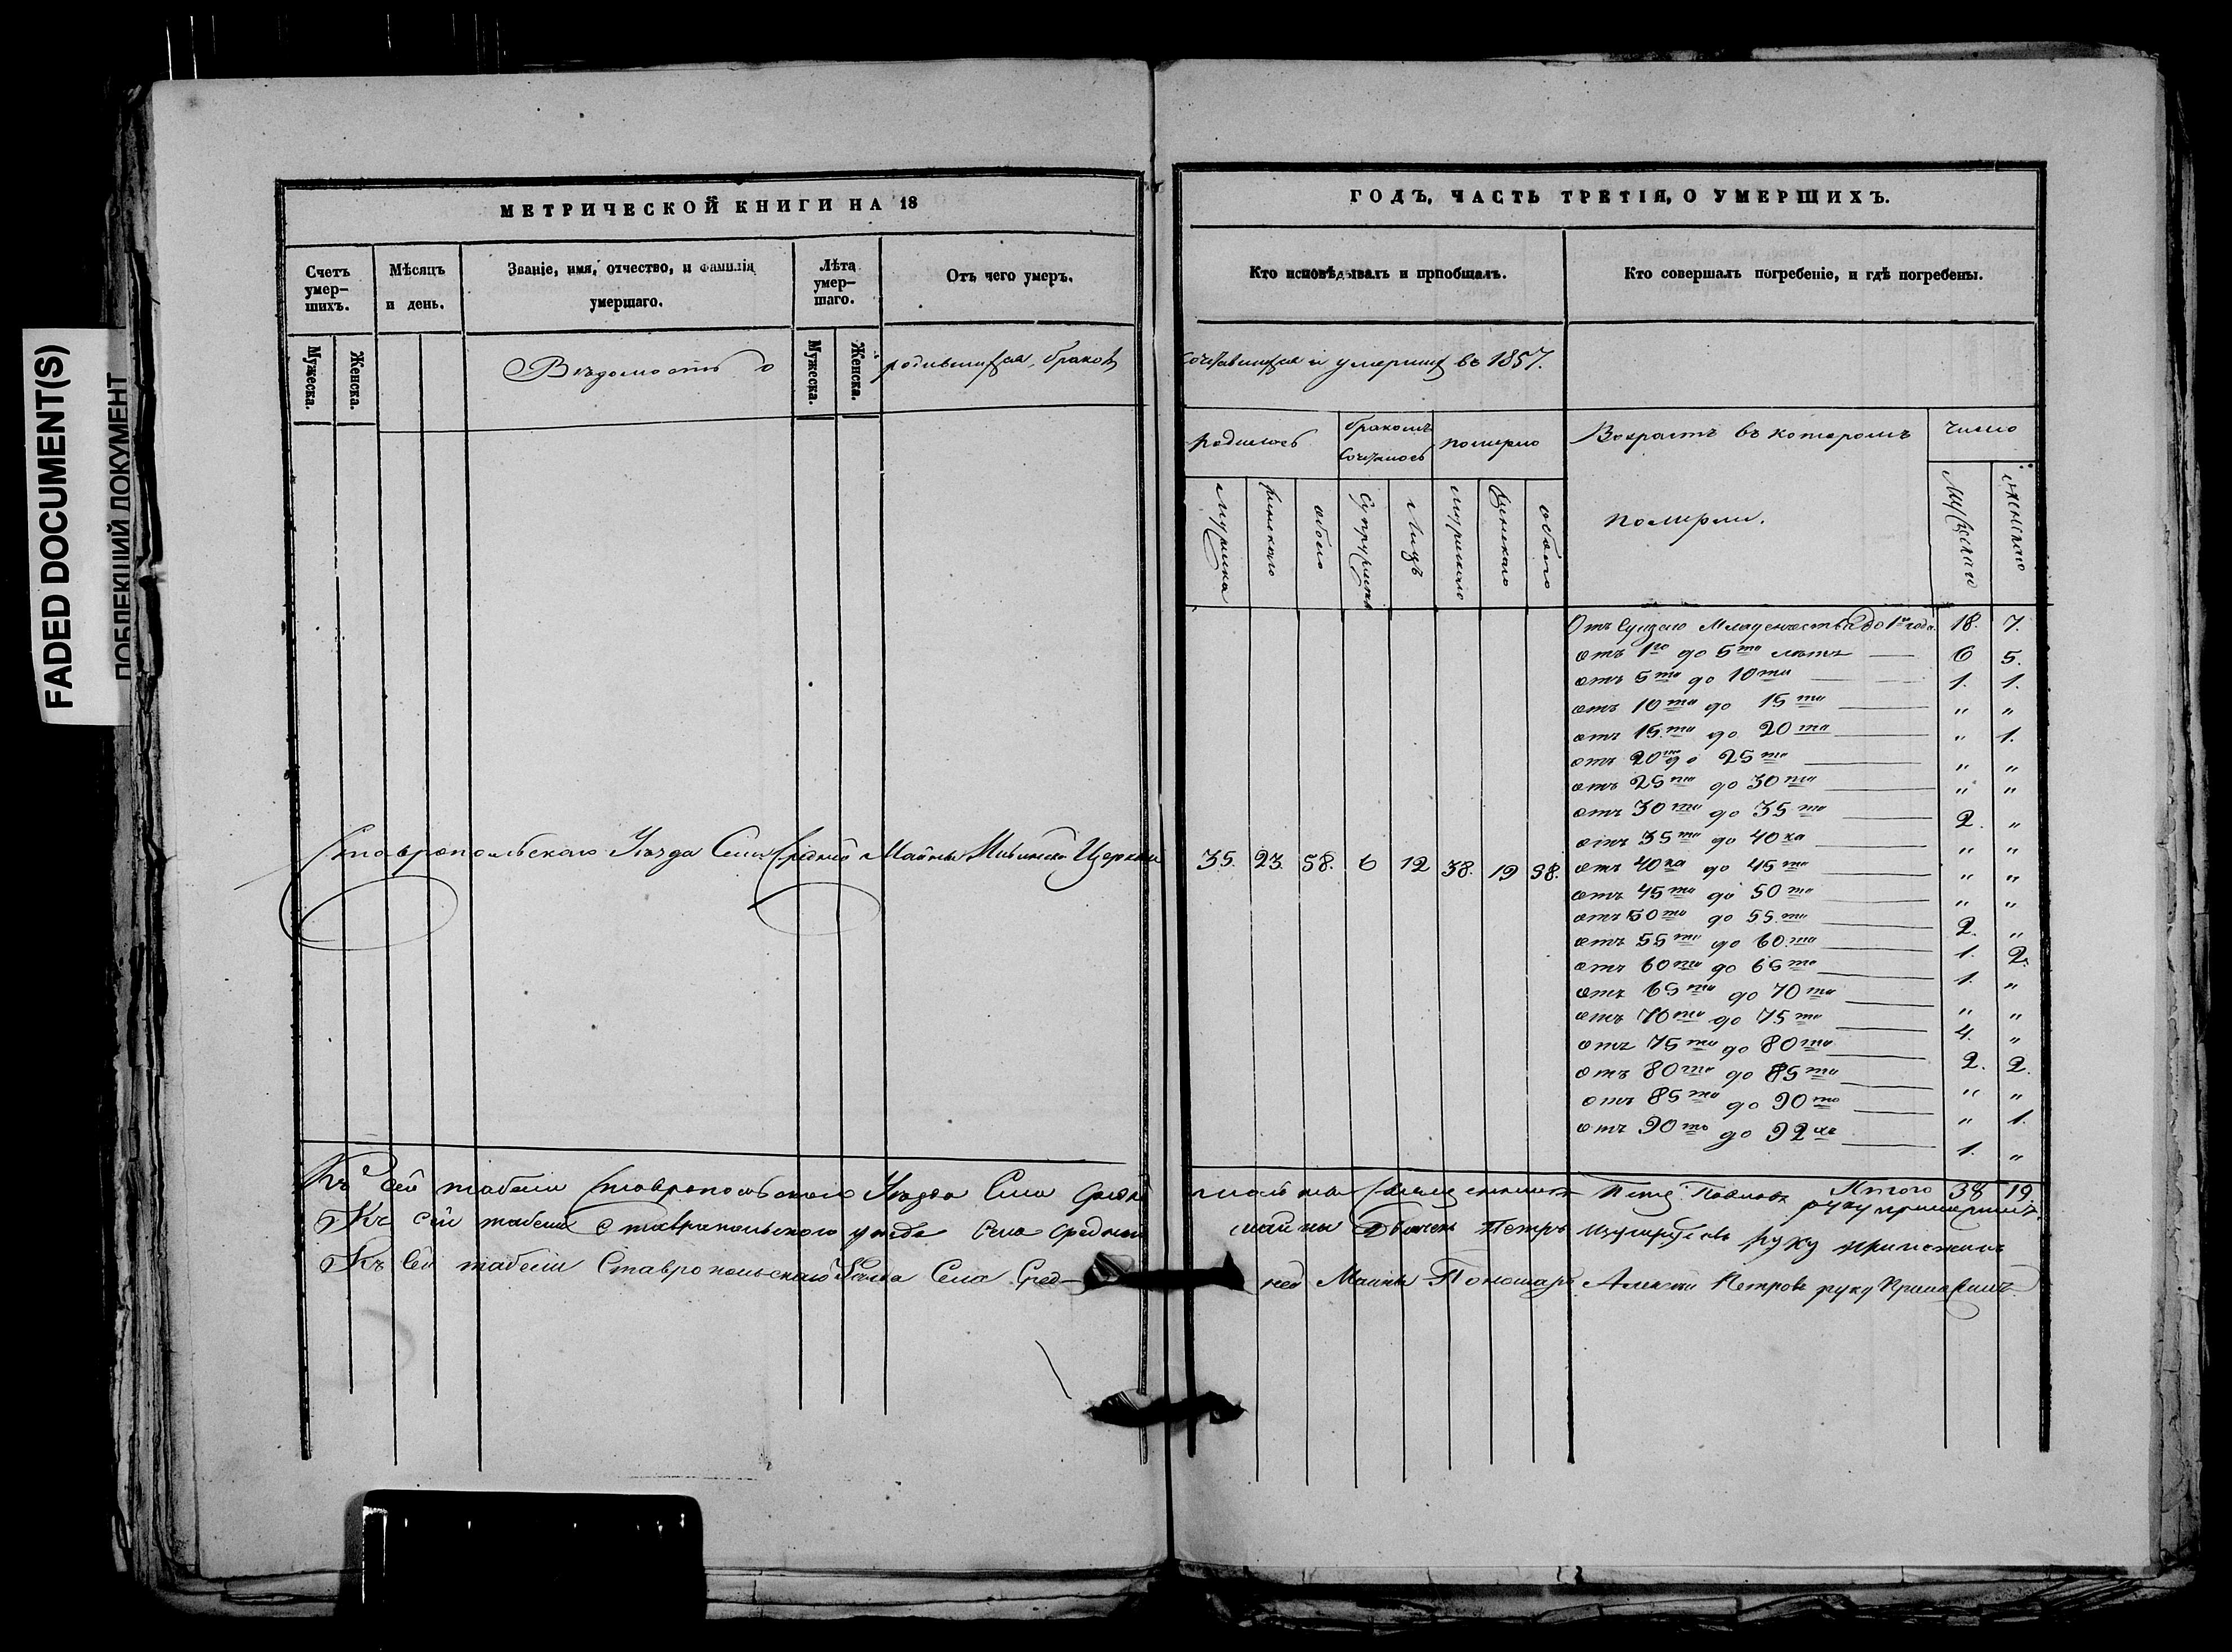 FADED DOCUMENT(S)
МЕТРИЧЕСКОЙ КНИГИ НА 18
Счетъ умер-шихъ.
Мѣсяцъ и день.
Званіе, имя, отчество, и фамилія умершаго.
Лѣта умер-шаго.
Отъ чего умеръ.
Мужеска.
Женска.
Мужеска.
Женска.
Вѣдомость о родившихся, браковъ
Ставропольскаго Уѣзда Села Средней Майны Церкви
Къ сей табели Ставропольскаго Уѣзда Села Средн
Къ сей табели Ставропольского уезда Села Средней
Къ сей табели Ставропольскаго Уѣзда Села Сред-
ГОДЪ, ЧАСТЬ ТРЕТІЯ, О УМЕРШИХЪ.
Кто исповѣдывалъ и пріобщалъ.
Кто совершалъ погребеніе, и гдѣ погребены.
сочетавшихся и умершихъ въ 1857.
родилось
бракомъ сочеталось
померло
Возрастъ въ которомъ померли.
число
женскаго
обоего
супружествъ
Лицъ
женскаго
обоего
мужскаго
женскаго
35. 23. 58. 6 12 38. 19 58.
Отъ Младенчества до 1го года. 18. 7.
отъ 1го до 5ти лѣтъ 6 5.
отъ 5ти до 10ти 1. 1.
отъ 10ти до 15ти " "
отъ 15ти до 20ти " 1.
отъ 20ти до 25ти " "
отъ 25ти до 30ти " "
отъ 30ти до 35ти 2. "
отъ 35ти до 40ка " "
отъ 40ка до 45ти " "
отъ 45ти до 50ти " "
отъ 50ти до 55ти 2. "
отъ 55ти до 60ти 1. 2.
отъ 60ти до 65ти 1. "
отъ 65ти до 70ти " "
отъ 70ти до 75ти 4. "
отъ 75ти до 80ти 2. 2.
отъ 80ти до 85ти " "
отъ 85ти до 90то " 1.
отъ 90то до 92хъ 1. "
Итого 38 19.
майны Священникъ Петръ Павловъ руку приложилъ
майны Дьяконъ Петръ руку приложилъ
ней Майны Пономарь Алексѣй Петровъ руку Приложилъ